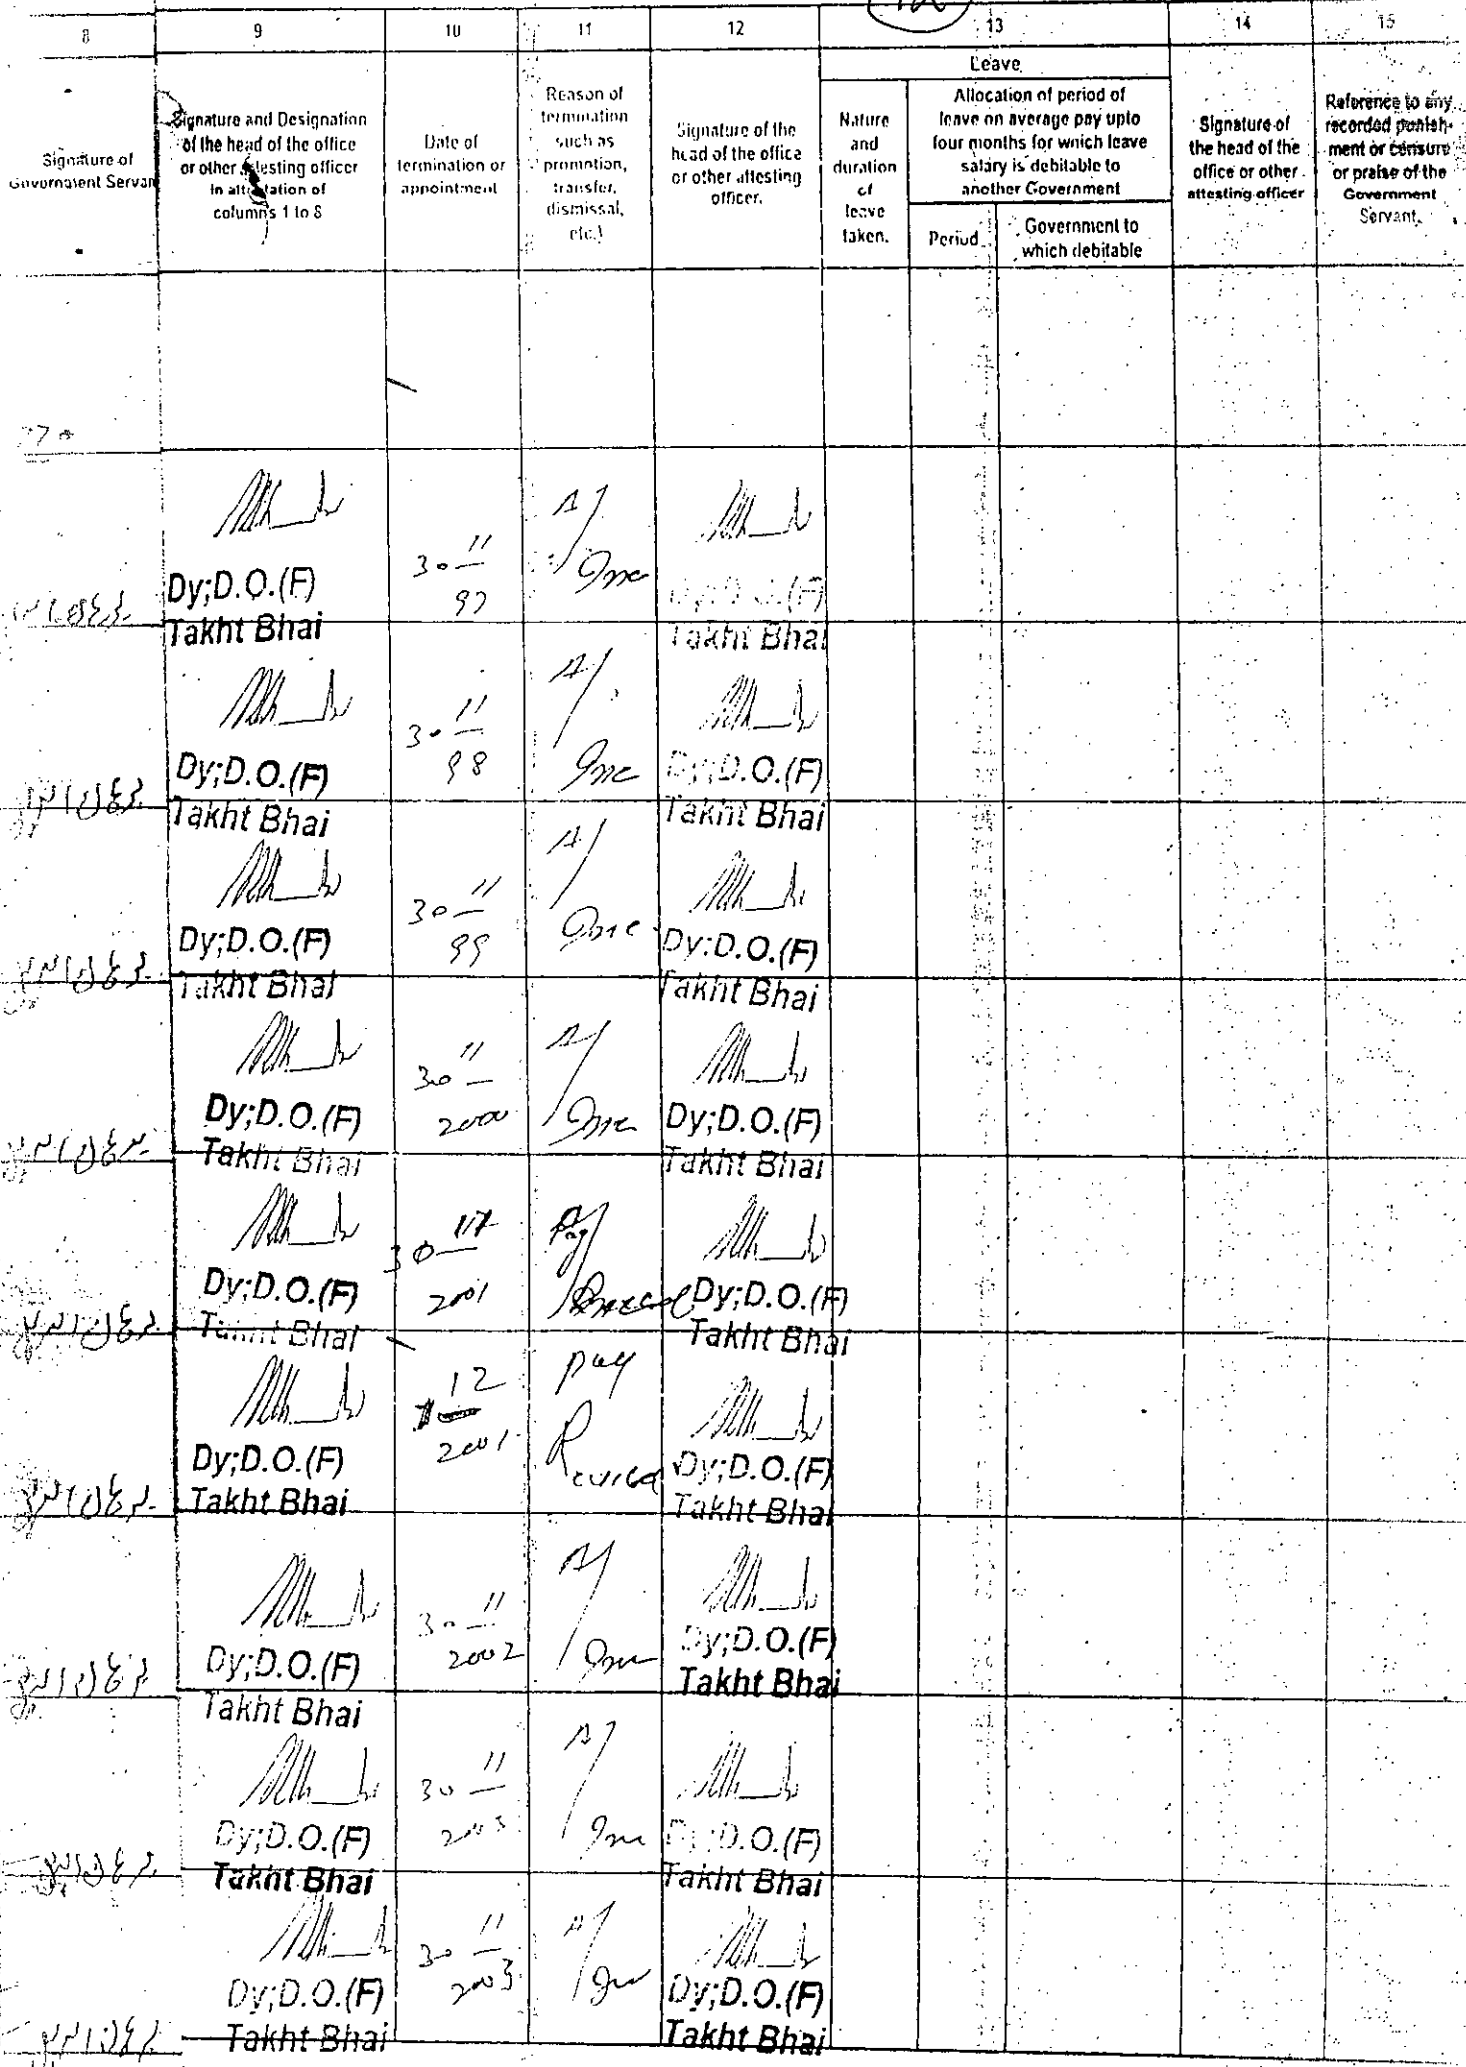 8 9 10 11 12 13 14 15
Signature of
Government Servan
Signature and Designation
of the head of the office
or other attesting officer
in attestation of
columns 1 to 8
Date of
termination or
appointment
Reason of
termination
such as
promotion,
transfer,
dismissal,
etc.)
Signature of the
head of the office
or other attesting
officer.
Leave
Nature
and
duration
of
leave
taken.
Allocation of period of
leave on average pay upto
four months for which leave
salary is debitable to
another Government
Period
Government to
which debitable
Signature of
the head of the
office or other
attesting officer
Reference to any
recorded punish-
ment or censure
or praise of the
Government
Servant.
Dy;D.O.(F)
Takht Bhai
30 11
97
A/
Inc
Dy;D.O.(F)
Takht Bhai
Dy;D.O.(F)
Takht Bhai
30 11
98
A/
Inc
Dy;D.O.(F)
Takht Bhai
Dy;D.O.(F)
Takht Bhai
30 11
99
A/
Inc
Dy;D.O.(F)
Takht Bhai
Dy;D.O.(F)
Takht Bhai
30 11
2000
A/
Inc
Dy;D.O.(F)
Takht Bhai
Dy;D.O.(F)
Takht Bhai
30 11
2001
Pay
Dy;D.O.(F)
Takht Bhai
Dy;D.O.(F)
Takht Bhai
1 12
2001
Pay
Revised
Dy;D.O.(F)
Takht Bhai
Dy;D.O.(F)
Takht Bhai
30 11
2002
A/
Inc
Dy;D.O.(F)
Takht Bhai
Dy;D.O.(F)
Takht Bhai
30 11
2003
A/
Inc
Dy;D.O.(F)
Takht Bhai
Dy;D.O.(F)
Takht Bhai
30 11
2003
A/
Inc
Dy;D.O.(F)
Takht Bhai